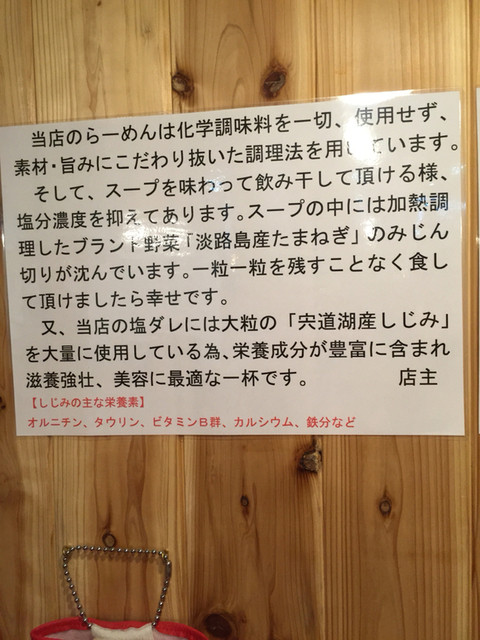 当店のらーめんは化学調味料を一切、使用せず、
素材・旨みにこだわり抜いた調理法を用しています。
そして、スープを味わって飲み干して頂ける様、
塩分濃度を抑えてあります。スープの中には加熱調
理したブランド野菜「淡路島産たまねぎ」のみじん
切りが沈んでいます。一粒一粒を残すことなく食し
て頂けましたら幸せです。
又、当店の塩ダレには大粒の「宍道湖産しじみ」
を大量に使用している為、栄養成分が豊富に含まれ
滋養強壮、美容に最適な一杯です。 店主
【しじみの主な栄養素】
オルニチン、タウリン、ビタミンB群、カルシウム、鉄分など